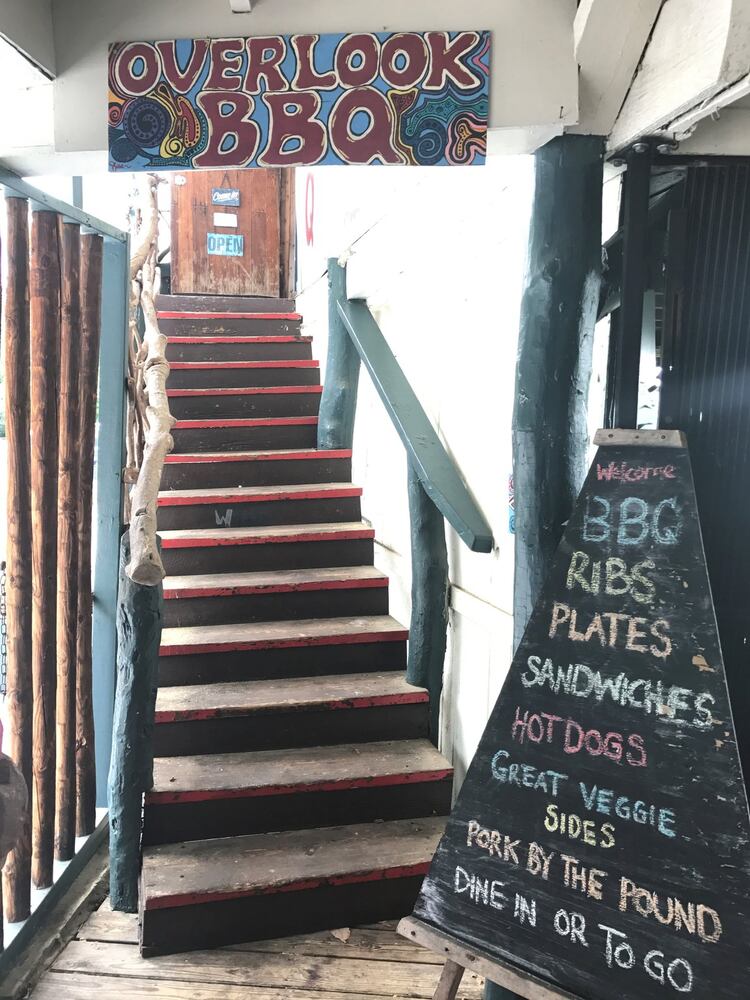 OVERLOOK
BBQ
OPEN
W
Welcome
BBQ
RIBS
PLATES
SANDWICHES
HOT DOGS
GREAT VEGGIE
SIDES
PORK BY THE POUND
DINE IN OR TO GO